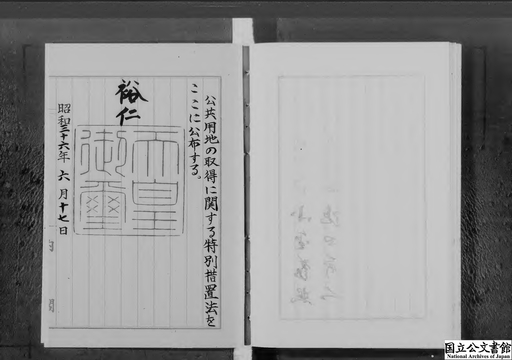 公共用地の取得に関する特別措置法を
ここに公布する。
裕仁
天皇
御璽
昭和三十六年六月十七日
内閣
国立公文書館
National Archives of Japan